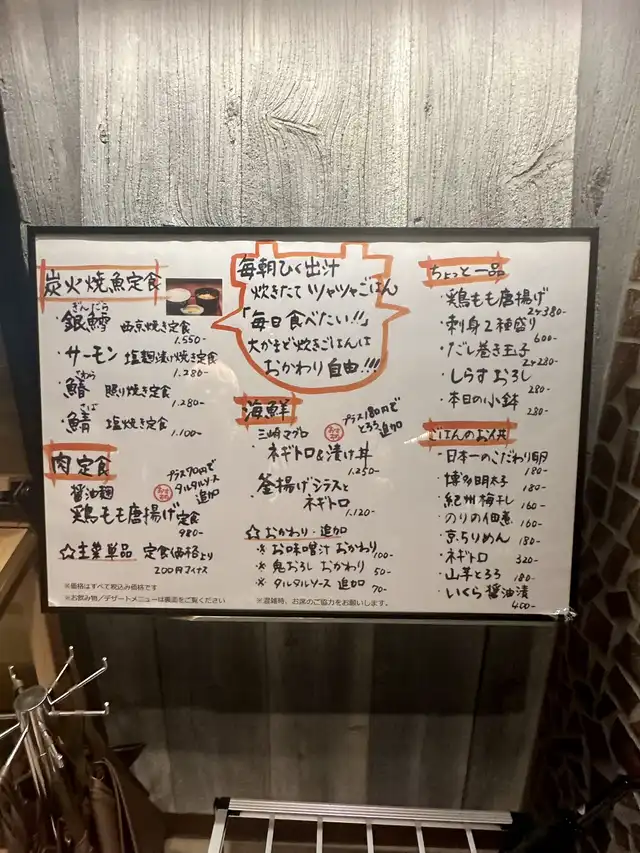 炭火焼魚定食
ぎんだら
銀鱈 西京焼き定食
1.550-
サーモン 塩麹漬け焼き定食
1.280-
さわら
鰆 照り焼き定食
1.280-
さば
鯖 塩焼き定食
1.100-
肉定食
醤油麹
プラス70円で
タルタルソース
追加
鶏もも唐揚げ定食
980-
☆主菜単品 定食価格より
200円マイナス
※価格はすべて税込み価格です
※お飲み物/デザートメニューは裏面をご覧ください
毎朝ひく出汁
炊きたてツヤツヤごはん
「毎日食べたい!!」
大かまど炊きごはんは
おかわり自由!!!
海鮮
三崎マグロ
プラス180円で
とろろ
追加
ネギトロ&漬け丼
1.250-
釜揚げシラスと
ネギトロ
1.120-
☆おかわり・追加
※ お味噌汁 おかわり 100-
※ 鬼おろし おかわり 50-
※ タルタルソース 追加 70-
※混雑時、お席のご協力をお願いします。
ちょっと一品
・鶏もも唐揚げ
2ヶ380-
・刺身2種盛り
600-
・だし巻き玉子
2ヶ280-
・しらすおろし
280-
・本日の小鉢
280-
ごはんのお供
・日本一のこだわり卵
180-
・博多明太子 180-
・紀州梅干し 160-
・のりの佃煮 160-
・京ちりめん 180-
・ネギトロ 320-
・山芋とろろ 180-
・いくら醤油漬
400-